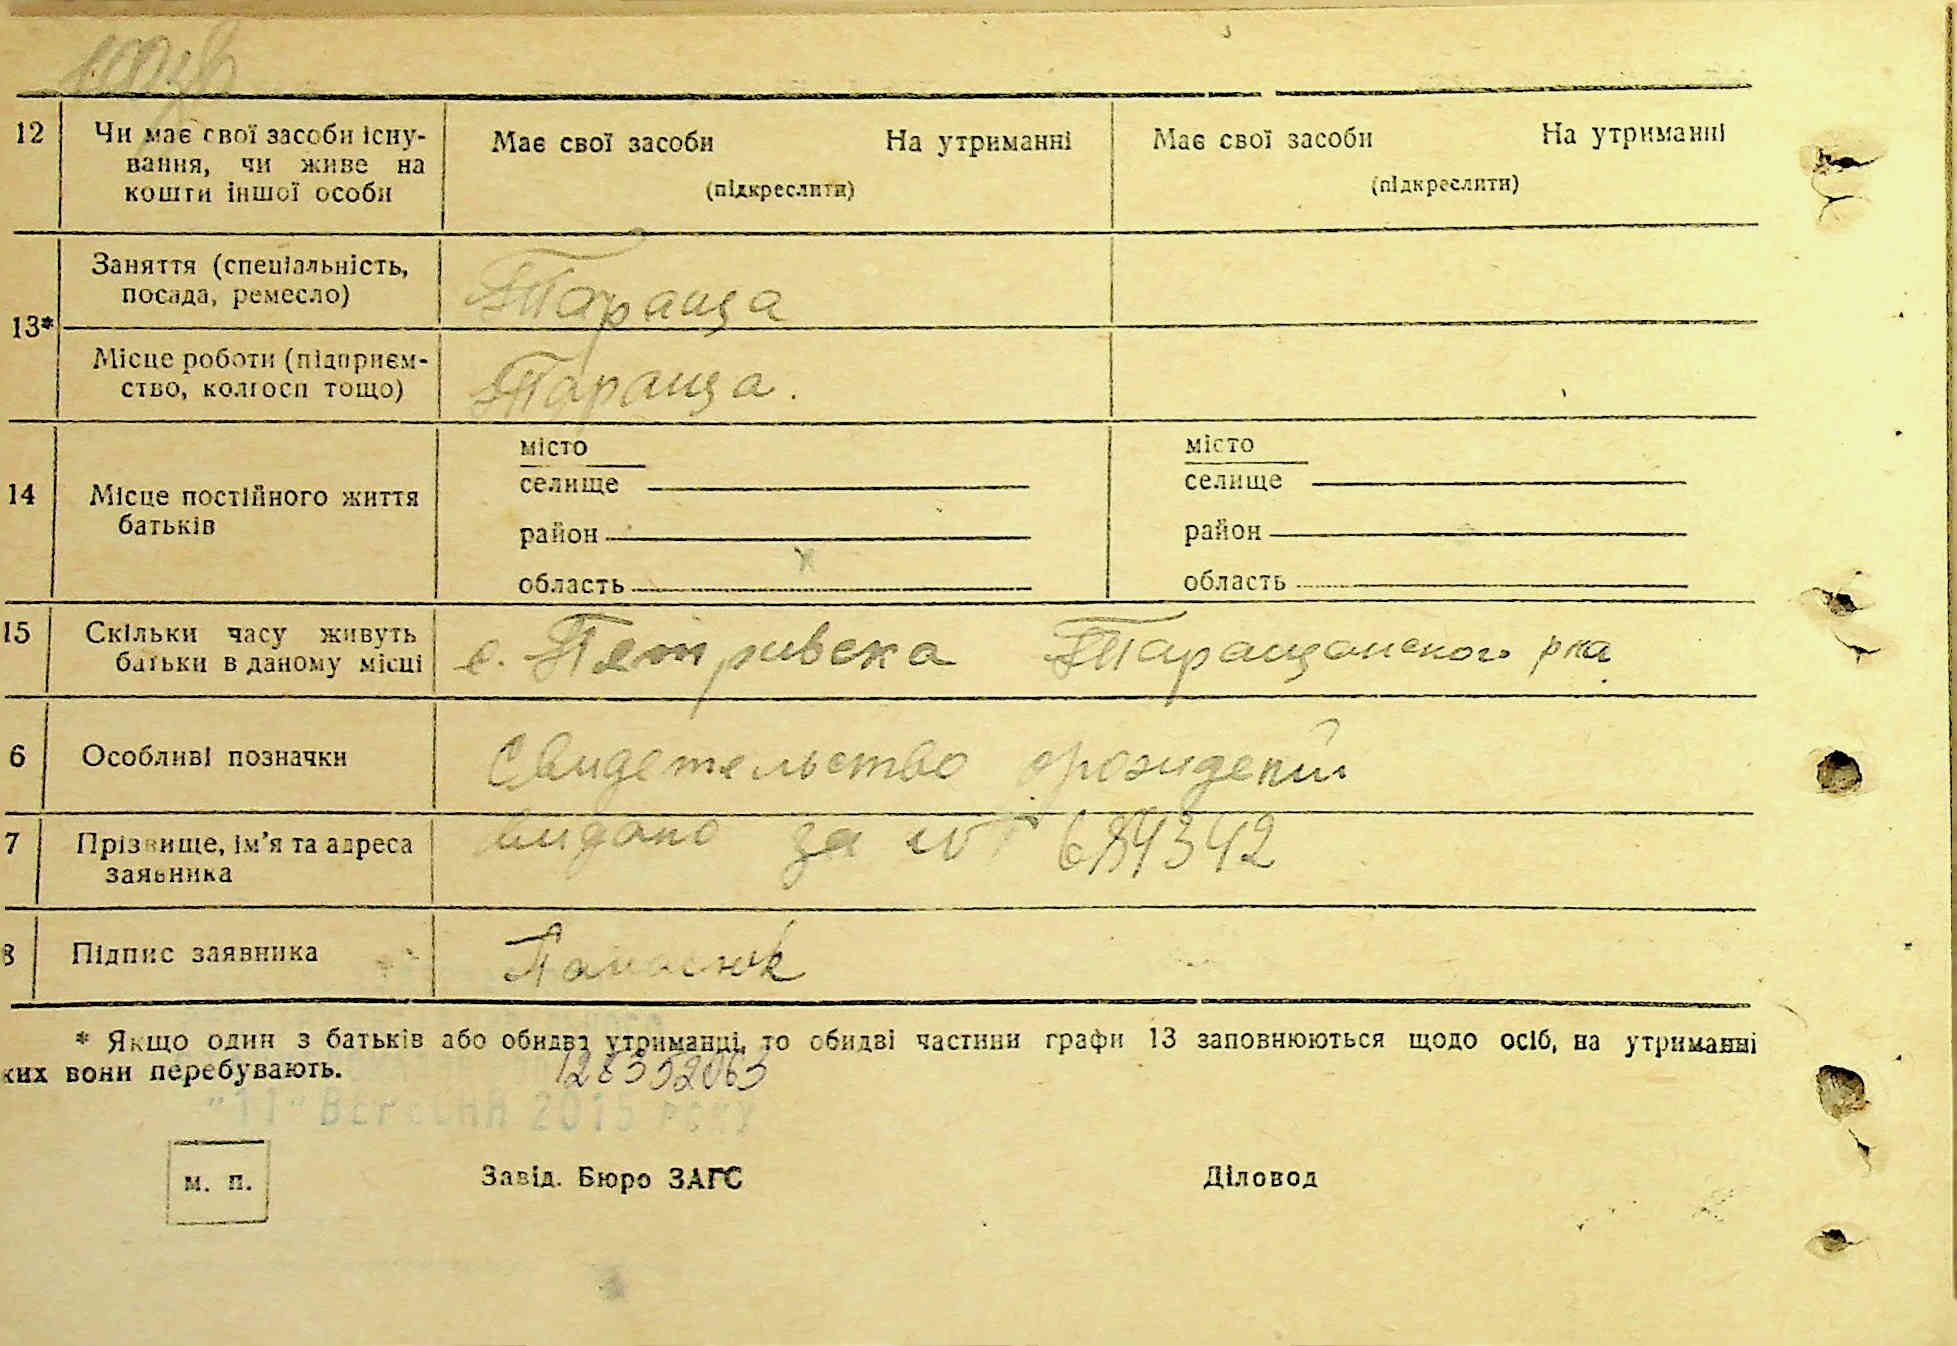 12
Чи має свої засоби існу-
вання, чи живе на
кошти іншої особи
Має свої засоби На утриманні
(підкреслити)
Має свої засоби На утриманні
(підкреслити)
13*
Заняття (спеціальність,
посада, ремесло)
Тараща
Місце роботи (підприєм-
ство, колгосп тощо)
Тараща.
14
Місце постійного життя
батьків
місто
селище
район
область
місто
селище
район
область
15
Скільки часу живуть
батьки в даному місці
с. Петривска Таращанского рна
6
Особливі позначки
Свидетельство орождении
видано за № 684342
7
Прізвище, ім'я та адреса
заявника
8
Підпис заявника
Панасюк
* Якщо один з батьків або обидва утриманці, то обидві частини графи 13 заповнюються щодо осіб, на утриманні
ких вони перебувають.
128552063
"11" Вересня 2015 року
м. п.
Завід. Бюро ЗАГС
Діловод